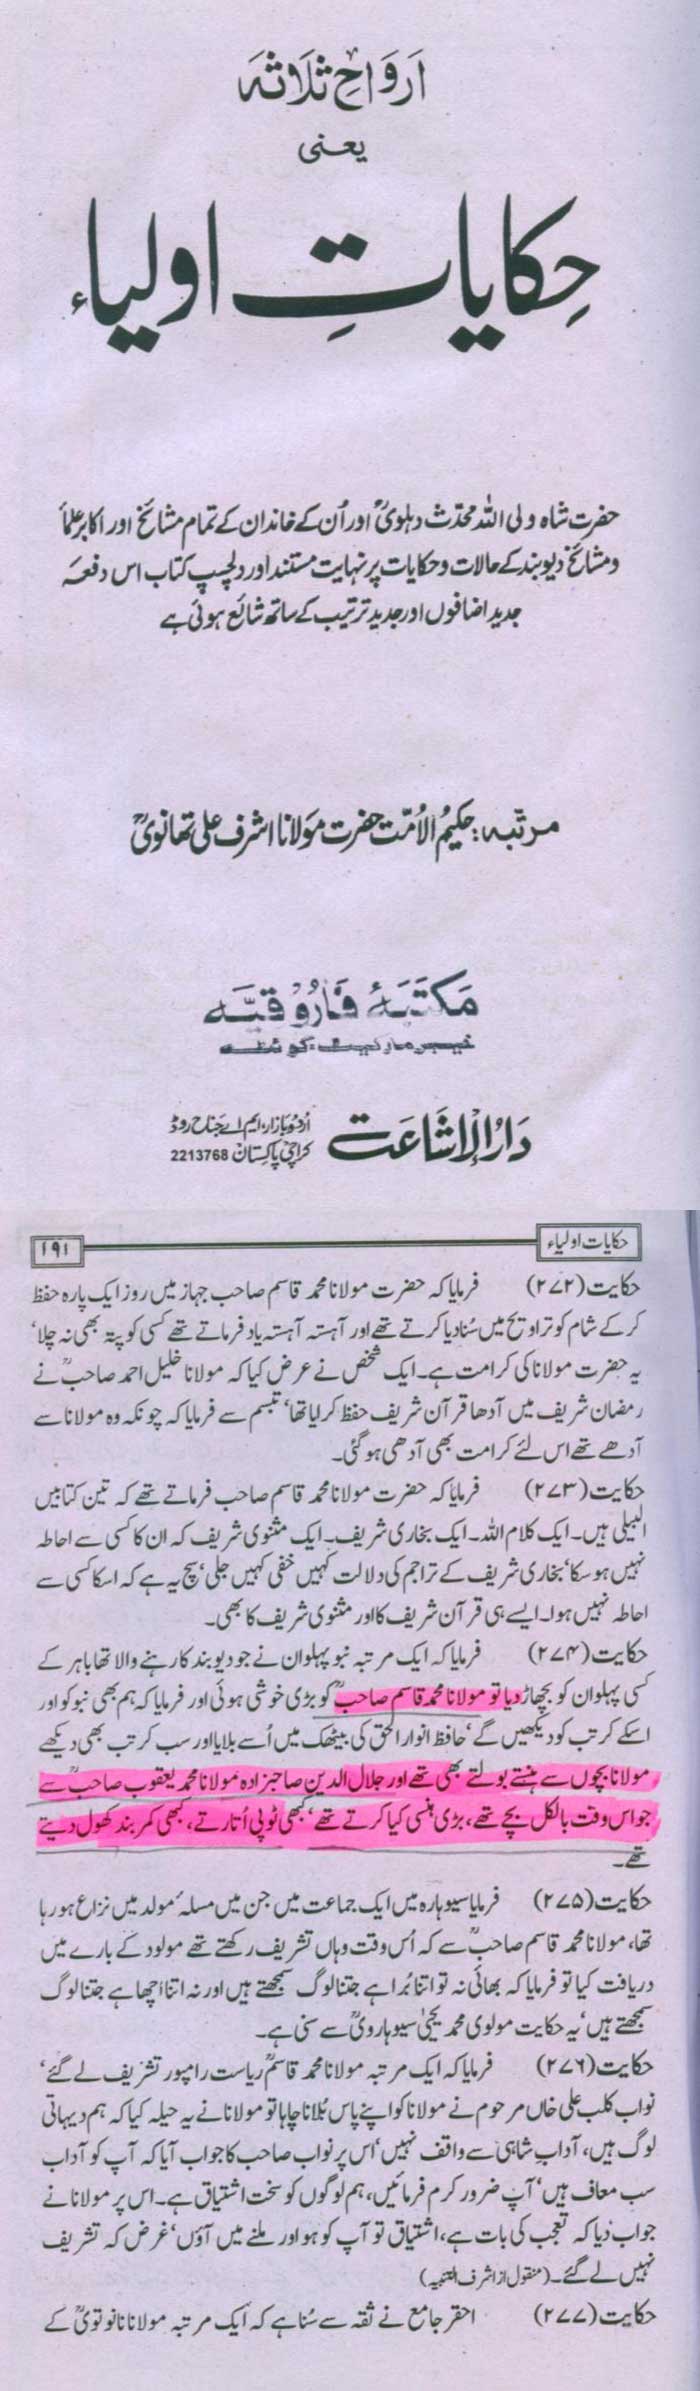 ارواحِ ثلاثہ
یعنی
حکایاتِ اولیاء
حضرت شاہ ولی اللہ محدّث دہلویؒ اور اُن کے خاندان کے تمام مشائخ اور اکابر علمأ
و مشائخ دیوبند کے حالات و حکایات پر نہایت مستند اور دلچسپ کتاب اس دفعہ
جدید اضافوں اور جدید ترتیب کے ساتھ شائع ہوئی ہے
مرتبہ: حکیمُ الاُمّت حضرت مَولانا اشرف علی تھانویؒ
مکتبۂ فاروقیّہ
خیبر مارکیٹ، کوئٹہ
دَارُالاِشَاعَت اُردُو بازار، ایم اے جناح روڈ
کراچی پاکستان 2213768
حکایات اولیاء ۱۹۱
حکایت (۲۷۲) فرمایا کہ حضرت مولانا محمد قاسم صاحب جہاز میں روز ایک پارہ حفظ
کر کے شام کو تراویح میں سُنا دیا کرتے تھے اور آہستہ آہستہ یاد فرماتے تھے کسی کو پتہ بھی نہ چلا،
یہ حضرت مولانا کی کرامت ہے۔ ایک شخص نے عرض کیا کہ مولانا خلیل احمد صاحبؒ نے
رمضان شریف میں آدھا قرآن شریف حفظ کرلیا تھا، تبسم سے فرمایا کہ چونکہ وہ مولانا سے
آدھے تھے اس لئے کرامت بھی آدھی ہوگئی۔
حکایت (۲۷۳) فرمایا کہ حضرت مولانا محمد قاسم صاحب فرماتے تھے کہ تین کتابیں
البیلی ہیں۔ ایک کلام اللہ۔ ایک بخاری شریف۔ ایک مثنوی شریف کہ ان کا کسی سے احاطہ
نہیں ہوسکا، بخاری شریف کے تراجم کی دلالت کہیں خفی کہیں جلی، سچ یہ ہے کہ اسکا کسی سے
احاطہ نہیں ہوا۔ ایسے ہی قرآن شریف کا اور مثنوی شریف کا بھی۔
حکایت (۲۷۴) فرمایا کہ ایک مرتبہ نبو پہلوان نے جو دیوبند کا رہنے والا تھا باہر کے
کسی پہلوان کو پچھاڑ دیا تو مولانا محمد قاسم صاحبؒ کو بڑی خوشی ہوئی اور فرمایا کہ ہم بھی نبو کو اور
اسکے کرتب کو دیکھیں گے، حافظ انوار الحق کی بیٹھک میں اُسے بلایا اور سب کرتب بھی دیکھے
مولانا بچوں سے ہنستے بولتے بھی تھے اور جلال الدین صاحبزادہ مولانا محمد یعقوب صاحبؒ سے
جو اس وقت بالکل بچے تھے، بڑی ہنسی کیا کرتے تھے، کبھی ٹوپی اُتارتے، کبھی کمر بند کھول دیتے
تھے۔
حکایت (۲۷۵) فرمایا سیوہارہ میں ایک جماعت میں جن میں مسلہ مولد میں نزاع ہو رہا
تھا، مولانا محمد قاسم صاحبؒ سے کہ اُس وقت وہاں تشریف رکھتے تھے مولود کے بارے میں
دریافت کیا تو فرمایا کہ بھائی نہ تو اتنا بُرا ہے جتنا لوگ سمجھتے ہیں اور نہ اتنا اچھا ہے جتنا لوگ
سمجھتے ہیں، یہ حکایت مولوی محمد یحییٰ سیوہارویؒ سے سنی ہے۔
حکایت (۲۷۶) فرمایا کہ ایک مرتبہ مولانا محمد قاسمؒ ریاست رامپور تشریف لے گئے،
نواب کلب علی خاں مرحوم نے مولانا کو اپنے پاس بُلانا چاہا تو مولانا نے یہ حیلہ کیا کہ ہم دیہاتی
لوگ ہیں، آدابِ شاہی سے واقف نہیں، اس پر نواب صاحب کا جواب آیا کہ آپ کو آداب
سب معاف ہیں، آپ ضرور کرم فرمائیں، ہم لوگوں کو سخت اشتیاق ہے۔ اس پر مولانا نے
جواب دیا کہ تعجب کی بات ہے، اشتیاق تو آپ کو ہو اور ملنے میں آؤں، غرض کہ تشریف
نہیں لے گئے۔ (منقول از اشرف التنبیہ)
حکایت (۲۷۷) احقر جامع نے ثقہ سے سُنا ہے کہ ایک مرتبہ مولانا نانوتویؒ کے